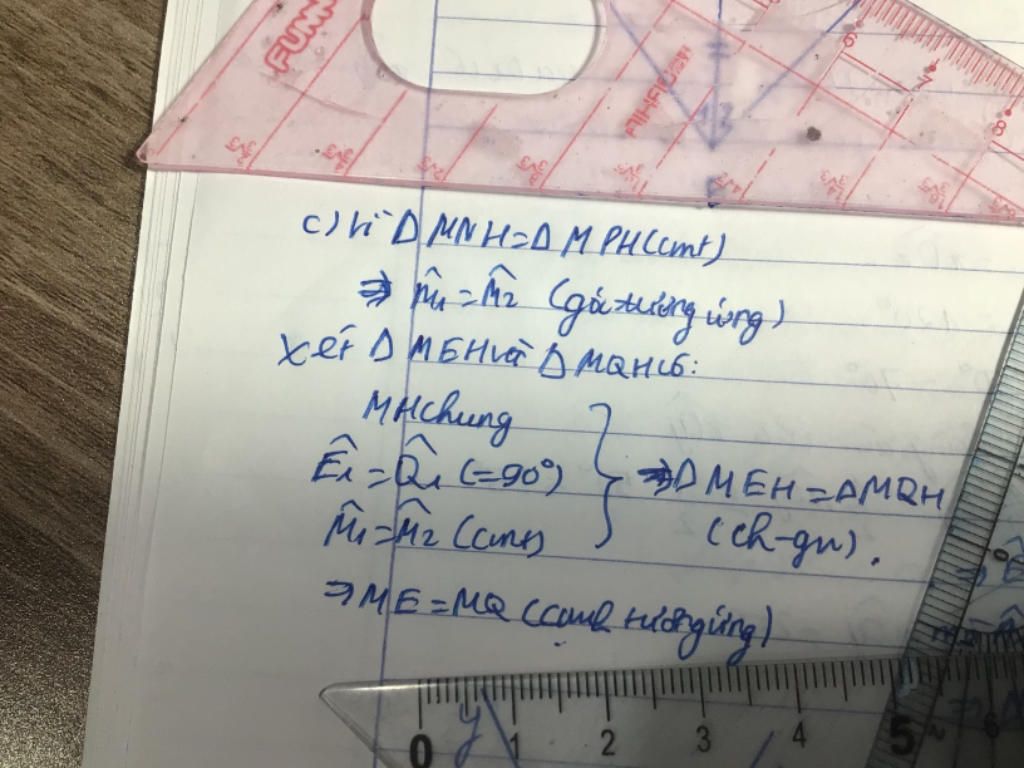 c) Vì Δ MNH = Δ MPH (cmt)
⇒ M̂₁ = M̂₂ (góc tương ứng)
Xét Δ MEH và Δ MQH có:
MH chung
Ê₁ = Q̂₁ (=90°)
M̂₁ = M̂₂ (cmt)
⇒ Δ MEH = Δ MQH
(ch-gn).
⇒ ME = MQ (cạnh tương ứng)
0 1 2 3 4 5 6
6 7 8
y